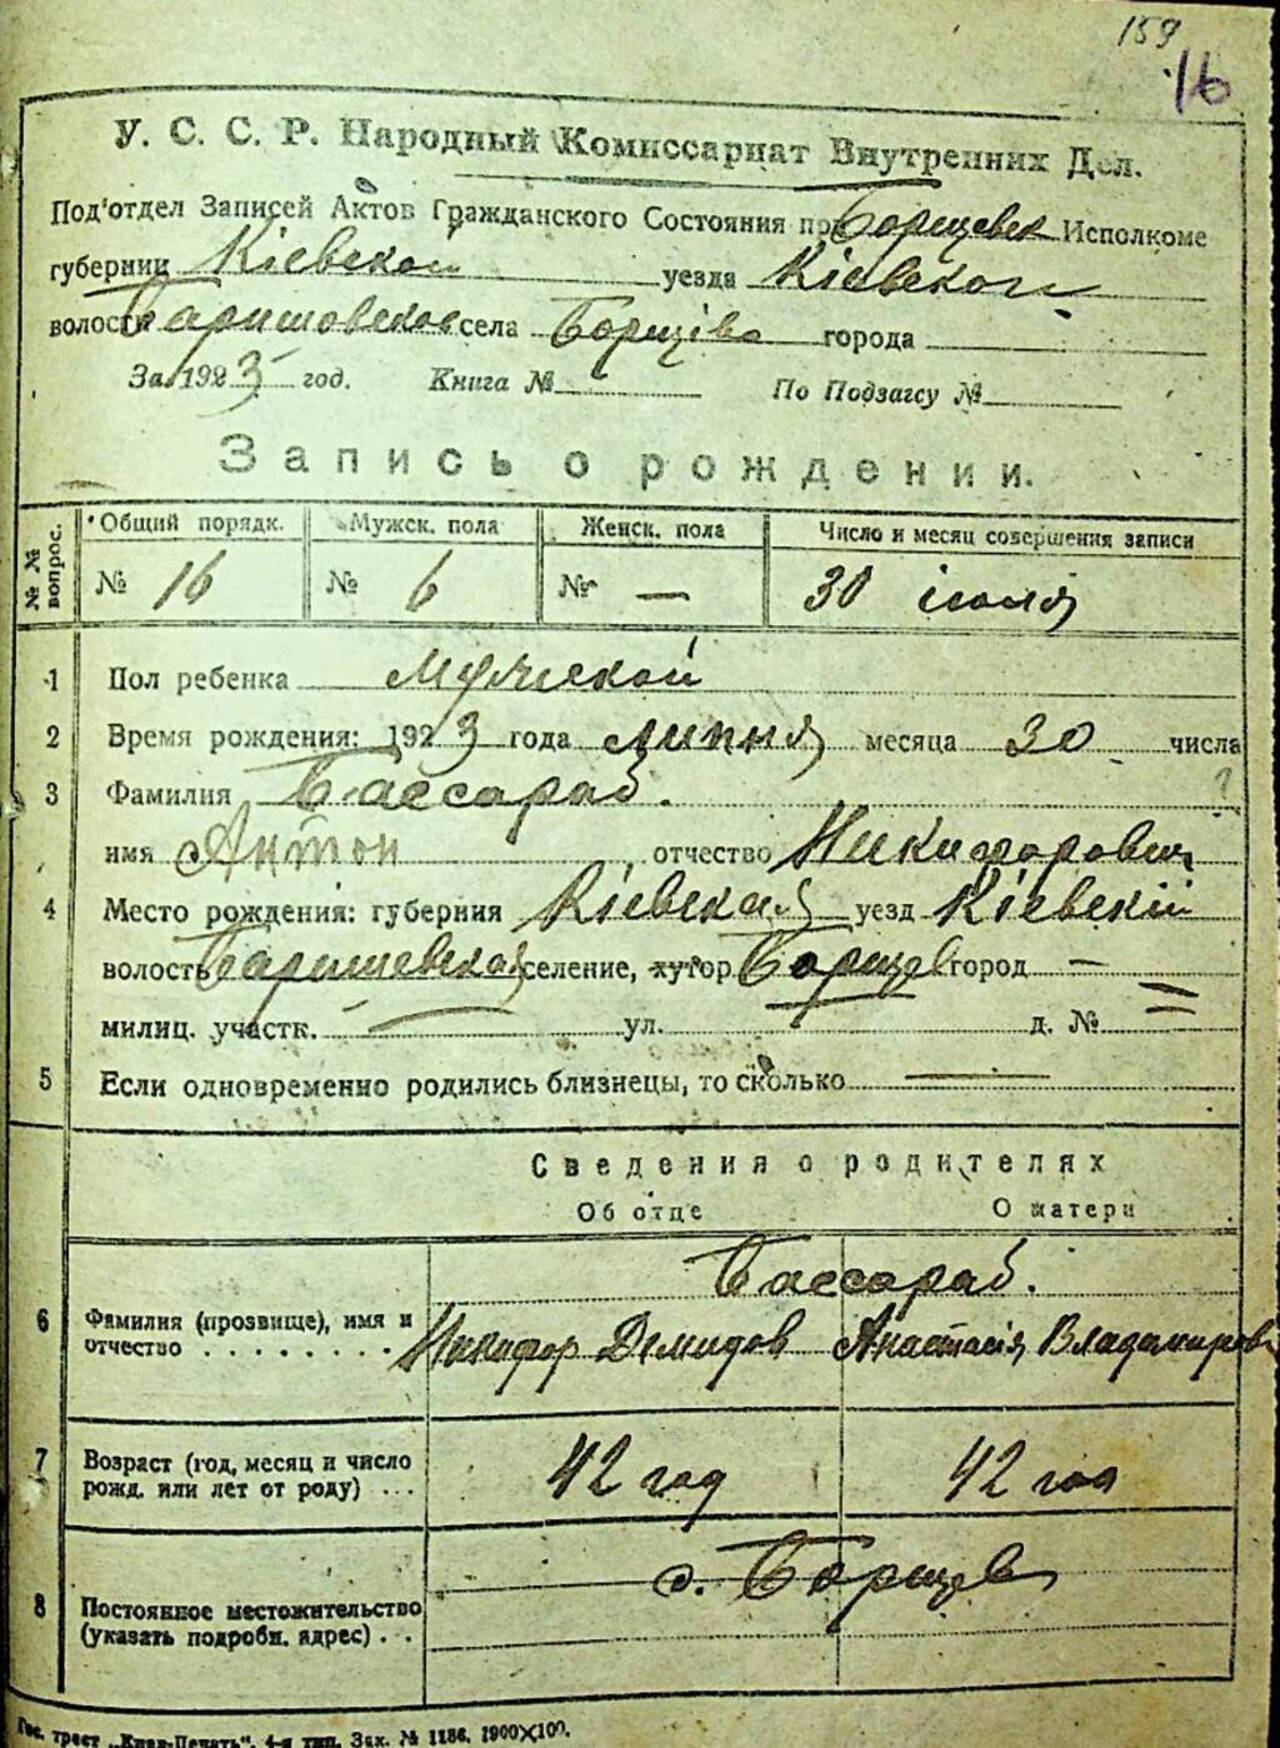 159
16
У. С. С. Р. Народный Комиссариат Внутренних Дел.
Под'отдел Записей Актов Гражданского Состояния при Борщевск Исполкоме
губернии Кіевской уезда Кіевского
волости Баришовской села Борщів города
За 1923 год. Книга № По Подзагсу №
Запись о рождении.
№ № вопрос.
Общий порядк. Мужск. пола Женск. пола Число и месяц совершения записи
№ 16 № 6 № — 30 июля
1 Пол ребенка Мужской
2 Время рождения: 1923 года липня месяца 30 числа
3 Фамилия Бассараб. ?
имя Антон, отчество Никифорович
4 Место рождения: губерния Кіевская уезд Кіевскій
волость Баришевская селение, хутор Борщев город —
милиц. участк. — ул. д. № =
5 Если одновременно родились близнецы, то сколько —
Сведения о родителях
Об отце О матери
Бассараб.
6 Фамилия (прозвище), имя и
отчество . . . . . . . . Никифор Демидов Анастасія Владимиров
7 Возраст (год, месяц и число
рожд. или лет от роду) . . . 42 год 42 год
с. Борщев
8 Постоянное местожительство
(указать подробн. адрес) . .
Гос. трест „Киев-Печать", 4-я тип. Зак. № 1186. 1900×100.